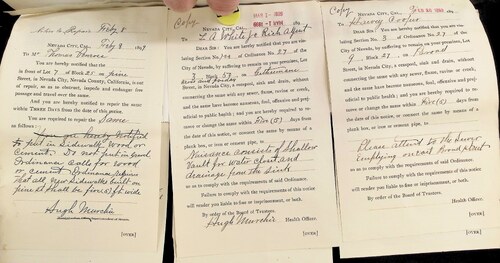 Feby 8
NEVADA CITY, CAL., Feby 8 1899
To Mr. Thomas Shurr
You are hereby notified that the
in front of Lot 7 of Block 25 on Pine
Street, in Nevada City, Nevada County, California, is out
of repair, so as to obstruct, impede and endanger free
passage and travel over the same.
And you are hereby notified to repair the same
within THREE DAYS from the date of this notice.
You are required to repair the Same
as follows:
You are hereby Notified
to put in Sidewalk wood or
Cement. Do not put in gravel
Ordinance Calls for wood
or cement Ordinance requires
That all new sidewalks built on
pine St shall be five ft wide
Hugh Murchie
[OVER]
Copy
NEVADA CITY, CAL.,
To L A White for Rich Agent
DEAR SIR: You are hereby notified that you are vio-
lating Section No. of Ordinance No. 27 of the
City of Nevada, by suffering to remain on your premises,
Street, in Nevada City, a cesspool, sink and drain, without
connecting the same with any sewer, flume, ravine or creek,
and the same have become noisome, foul, offensive and preju-
dicial to public health; and you are hereby required to re-
move or change the same within Five (5) days from
the date of this notice, or connect the same by means of a
plank box, or iron or cement pipe, to
Nuisance consists of Shallow
Vault for water closet and
drainage from the Sink
so as to comply with the requirements of said Ordinance.
Failure to comply with the requirements of this notice
will render you liable to fine or imprisonment, or both.
By order of the Board of Trustees.
Hugh Murchie
Health Officer.
[OVER]
Copy
NEVADA CITY, CAL.,
To George Hooper
DEAR SIR: You are hereby notified that you are vio-
lating Section No. 3 of Ordinance No. 27 of the
City of Nevada, by suffering to remain on your premises,
9 Block 27 on Broad
Street, in Nevada City, a cesspool, sink and drain, without
connecting the same with any sewer, flume, ravine or creek,
and the same have become noisome, foul, offensive and preju-
dicial to public health; and you are hereby required to re-
move or change the same within Five (5) days from
the date of this notice, or connect the same by means of a
plank box, or iron or cement pipe, to
Please attend to the Sewer
emptying on East Broad Street
so as to comply with the requirements of said Ordinance.
Failure to comply with the requirements of this notice
will render you liable to fine or imprisonment, or both.
By order of the Board of Trustees.
Health Officer.
[OVER]